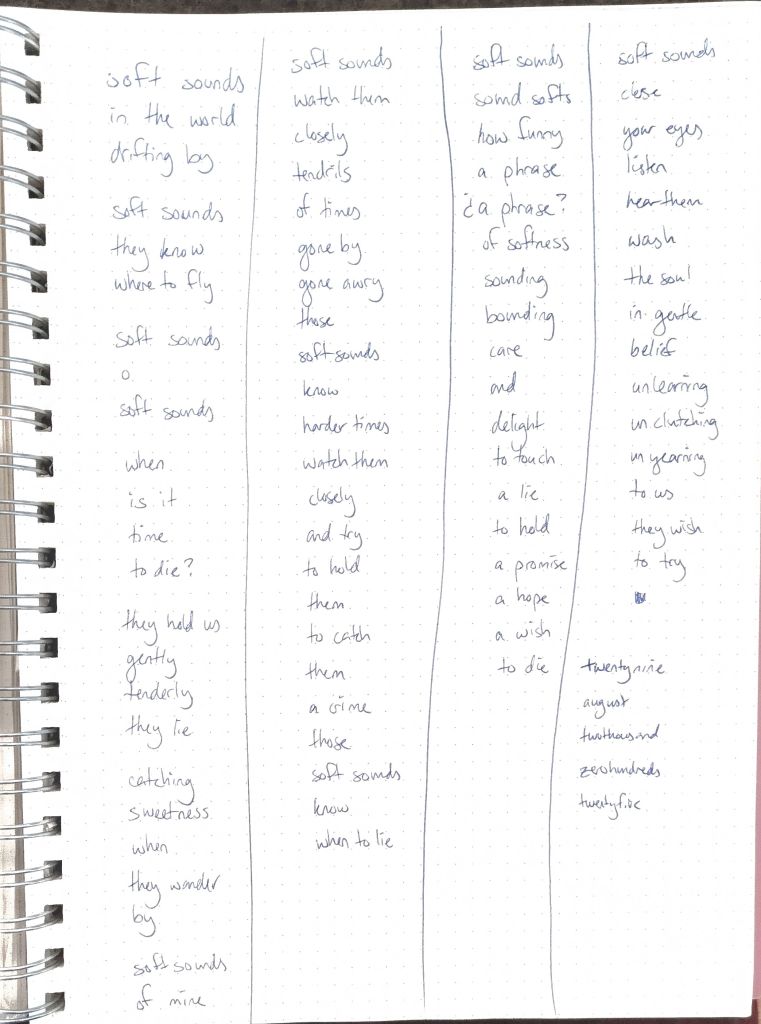 soft sounds
in the world
drifting by
soft sounds
they know
where to fly
soft sounds
o
soft sounds
when
is it
time
to die?
they hold us
gently
tenderly
they lie
catching
sweetness
when
they wander
by
soft sounds
of mine
soft sounds
watch them
closely
tendrils
of times
gone by
gone awry
those
soft sounds
know
harder times
watch them
closely
and try
to hold
them
to catch
them
a crime
those
soft sounds
know
when to lie
soft sounds
sound softs
how funny
a phrase
¿a phrase?
of softness
sounding
bounding
care
and
delight
to touch
a lie
to hold
a promise
a hope
a wish
to die
soft sounds
close
your eyes
listen
hear them
wash
the soul
in gentle
belief
unlearning
unclutching
unyearning
to us
they wish
to try
twentynine
august
twothousand
zerohundreds
twentyfive